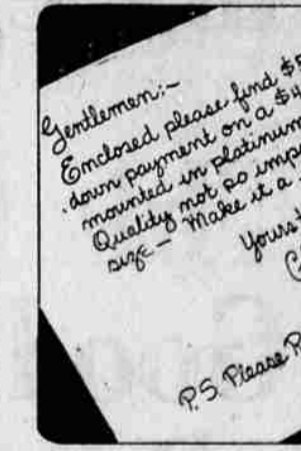 Gentlemen:-
Enclosed please find $5
down payment on a $4
mounted in platinum
Quality not so imp
size - Make it a
Yours
C
P.S. Please R